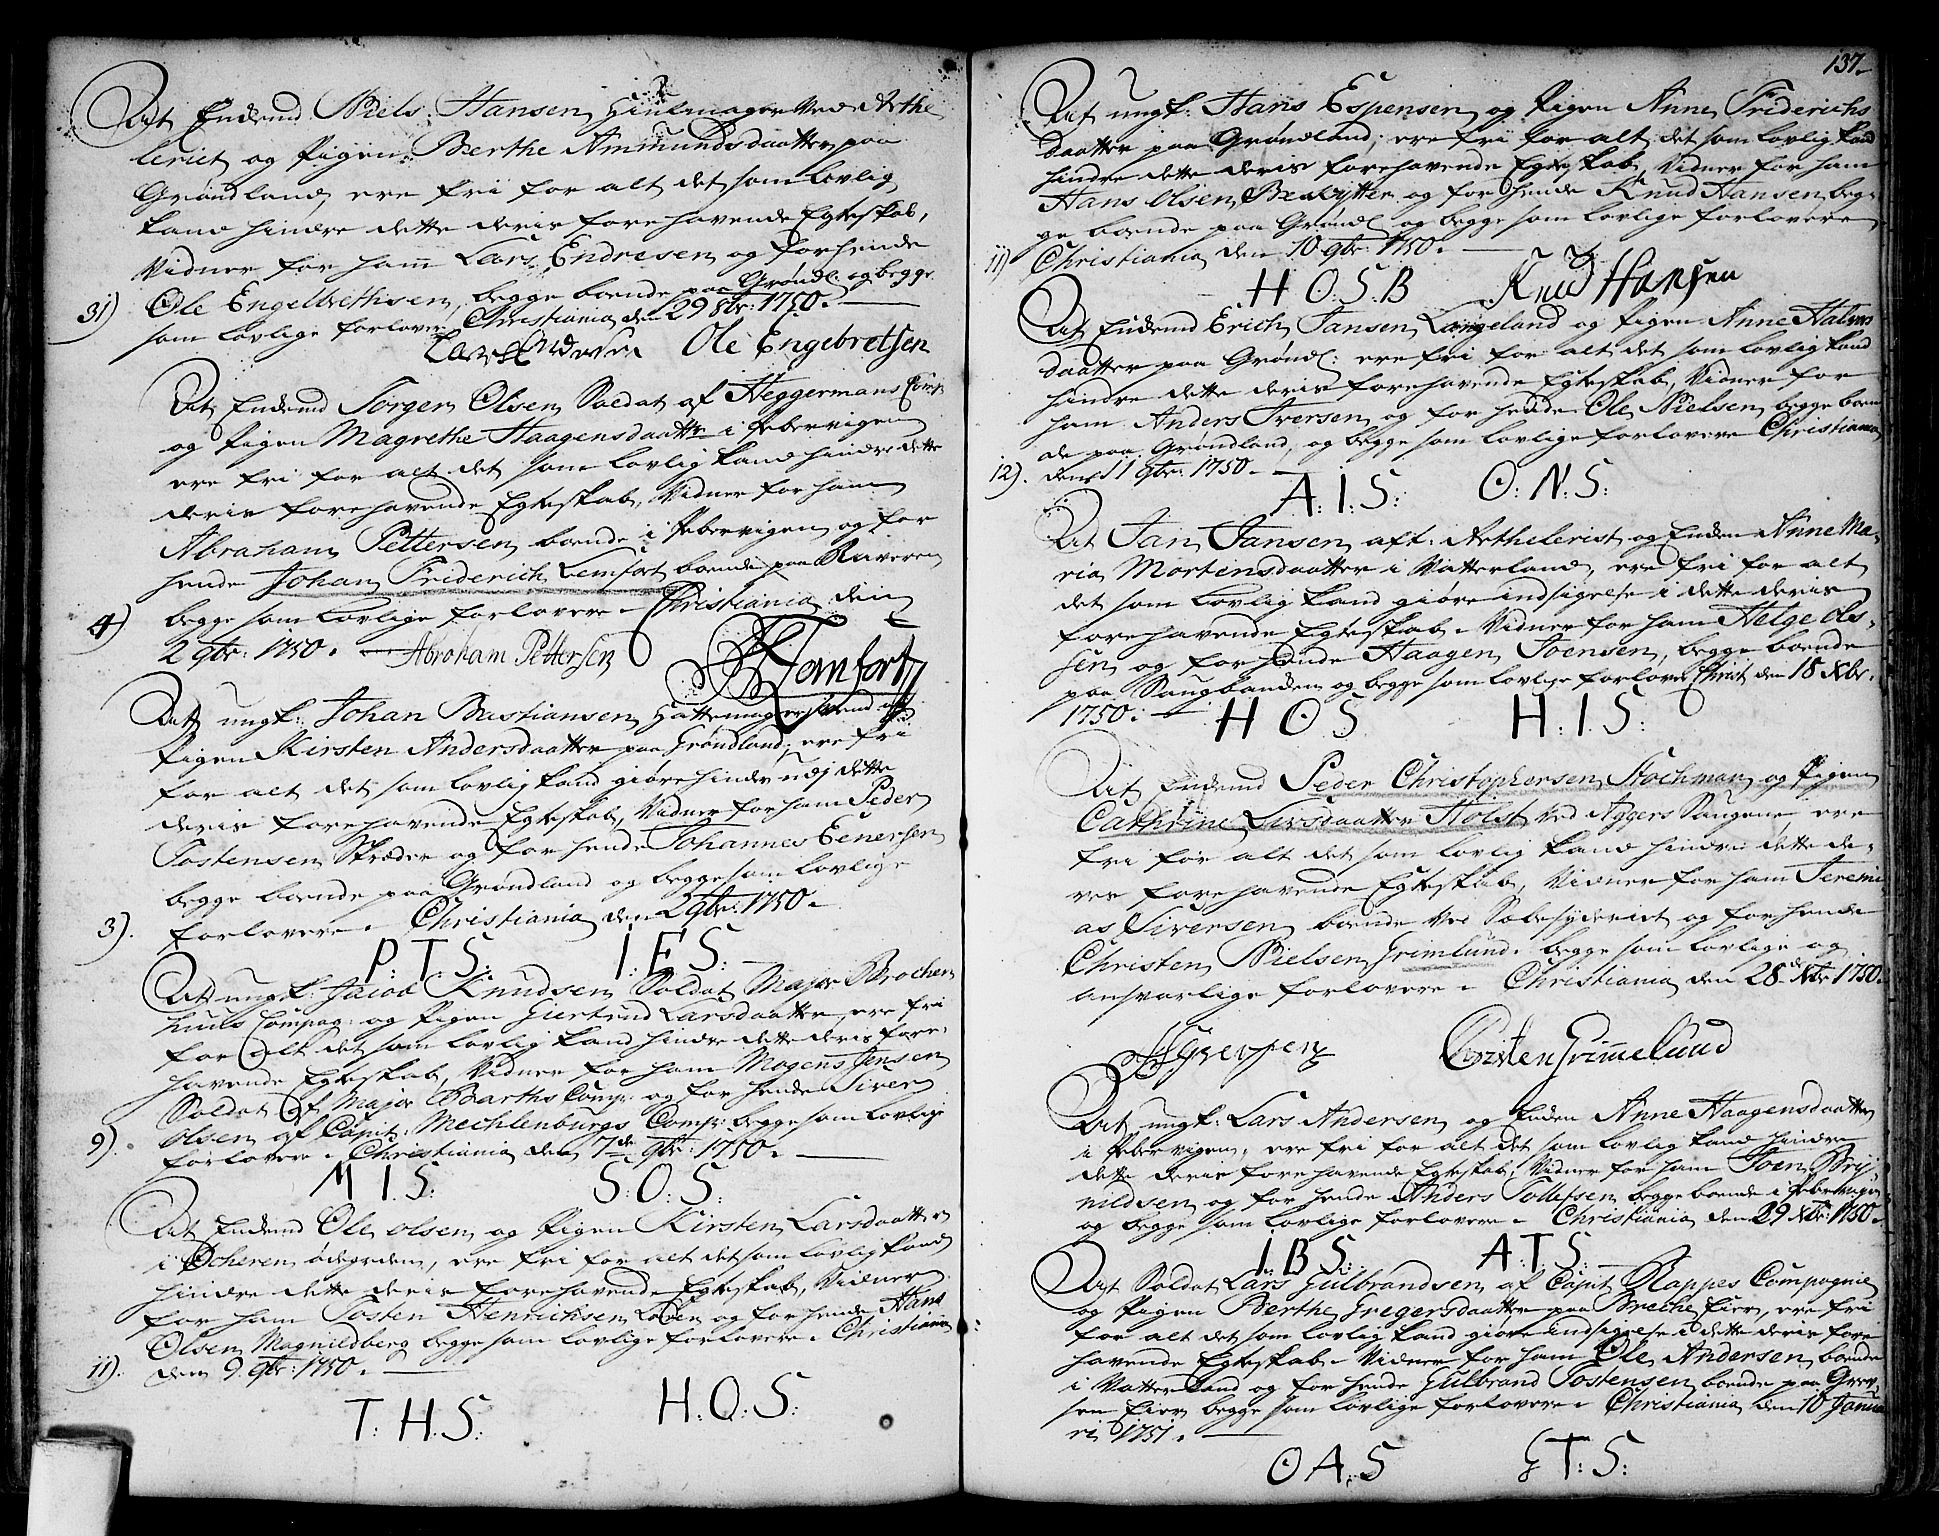 At Enckemd Niels Hansen Hiulmager Ved Arthe
leriet og Pigen Berthe Ammundsdaatter paa
Grøndland, ere fri for alt det som lovlig
kand hindre dette deris forehavende Egteskab,
Vidner for ham Lars Endresen og for hende
Ole Engelbrethsen, begge boende paa Grøndl: og begge
31) som lovlige forlover Christiania den 29 8br: 1750.
Ole Engebretsen
At Enckemd Jørgen Olsen Soldat af Heggermans Comp:
og Pigen Magrethe Haagensdaatter i Pebervigen
ere fri for alt det som lovlig kand hindre dette
deris forehavende Egteskab, Vidner for ham
Abraham Pettersen boende i Pebervigen og for
hende Johan Friderich Lemfort boende paa Ruiveren
4) begge som lovlige forlovere. Christiania den
2 9br: 1750. Abraham Pettersen
At ungk: Johan Bastiansen Hattemagersvend og
Pigen Kirsten Andersdaatter paa Grøndland, ere fri
for alt det som lovlig kand giøre hinder udj dette
deris forehavende Egteskab, Vidner for ham Peder
Tostensen Skræder og for hende Johannes Eenersen
begge boende paa Grøndland og begge som lovlige
3). forlovere. Christiania den 2 9br: 1750.
P: T S: I: E S:
At ungk: Jacob Knudsen Soldat Major Brochen
huus Compag: og Pigen Giertrud Larsdaatter, ere fri
for alt det som lovlig kand hindre dette deris fore-
havende Egteskab, Vidner for ham Mogens Jensen
Soldat af Major Barths Comp: og for hende Siver
Olsen af Capit: Mechlenburgs Comp: begge som lovlige
9). forlovere. Christiania den 7de 9br: 1750.
M I S: S: O: S:
At Enckemd Ole Olsen og Pigen Kirsten Larsdaatter
i Ocheren ødegorden, ere fri for alt det som lovlig kand
hindre dette deris forehavende Egteskab, Vidner
for ham Tosten Henrichsen og for hende Hans
Olsen Magnildberg begge som lovlige forlovere. Christiania
11). den 9. 9br: 1750.
T: H: S: H: O: S:
137.
At ungk: Hans Espensen og Pigen Anne Friderichs
daatter paa Grøndland, ere fri for alt det som lovlig kand
hindre dette deris forehavende Egteskab, Vidner for ham
Hans Olsen og for hende Knud Hansen beg-
ge boende paa Grøndl: og begge som lovlige forlovere
11) Christiania den 10 9br: 1750.
H O. S. B Knud Hansen
At Enckemd Erich Jansen Langeland og Pigen Anne Halvors
daatter paa Grøndl: ere fri for alt det som lovlig kand
hindre dette deris forehavende Egteskab, Vidner for
ham Anders Iversen og for hende Ole Nielsen begge boen
de paa Grøndland, og begge som lovlige forlovere Christiania
12). den 11 9br: 1750.
A: I: S: O: N: S:
At Jan Jansen aft: Arthelerist og Encken Anne Ma-
ria Mortensdaatter i Vatterland, ere fri for alt
det som lovlig kand giøre indsigelse i dette deris
forehavende Egteskab. Vidner for ham Helge Ols-
sen og for hende Haagen Joensen, begge boende
paa Saugbanden og begge som lovlige forlover Christ den 18 Xbr.
1750: H O S H: I: S:
At Enckemd Peder Christophersen Stochman og Pigen
Cathrine Larsdaatter Holst ved Aggers Saugene ere
fri for alt det som lovlig kand hindre dette de-
res forehavende Egteskab, Vidner for ham Jeremi
as Siversen boende Ved Sæbesyderiet og for hende
Christen Nielsen Grimlund. begge som lovlige og
ansvarlige forlovere. Christiania den 28de Xbr 1750.
Christen Grimmelund
At ungk: Lars Andersen og Encken Anne Haagensdaatter
i Pebervigen, ere fri for alt det som lovlig kand hindre
dette deris forehavende Egteskab, Vidner for ham Joen Bry-
nildsen og for hende Anders Tollefsen begge boende i Pebervigen
og begge som lovlige forlovere. Christiania den 29 Xbr: 1750.
I: B S: A: T S:
At Soldat Lars Gulbrandsen af Capit Rappes Compagnie
og Pigen Berthe Gregersdaatter paa Breche Eier, ere fri
for alt det som lovlig kand giøre indsigelse i dette deris fore
havende Egteskab. Vidner for ham Ole Andersen boende
i Vatterland og for hende Gulbrand Tostensen boende paa Grev-
sen Eier begge som lovlige forlovere. Christiania den 10 Janua
ri 1751.
O A. S G T: S: